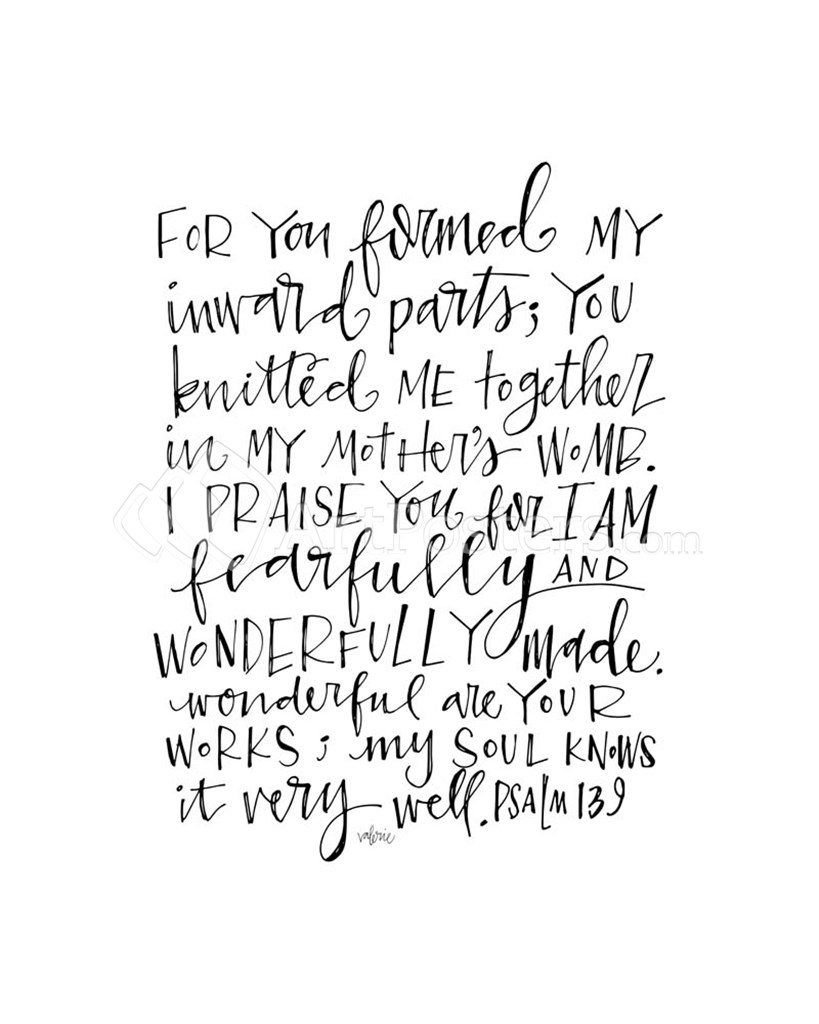 FOR YOU formed MY
inward parts; YOU
knitted ME together
in MY MOTHER'S WOMB.
I PRAISE YOU for I AM
fearfully AND
WONDERFULLY made.
wonderful are YOUR
WORKS; my SOUL KNOWS
it very well. PSALM 139
valerie
ArtPosters.com